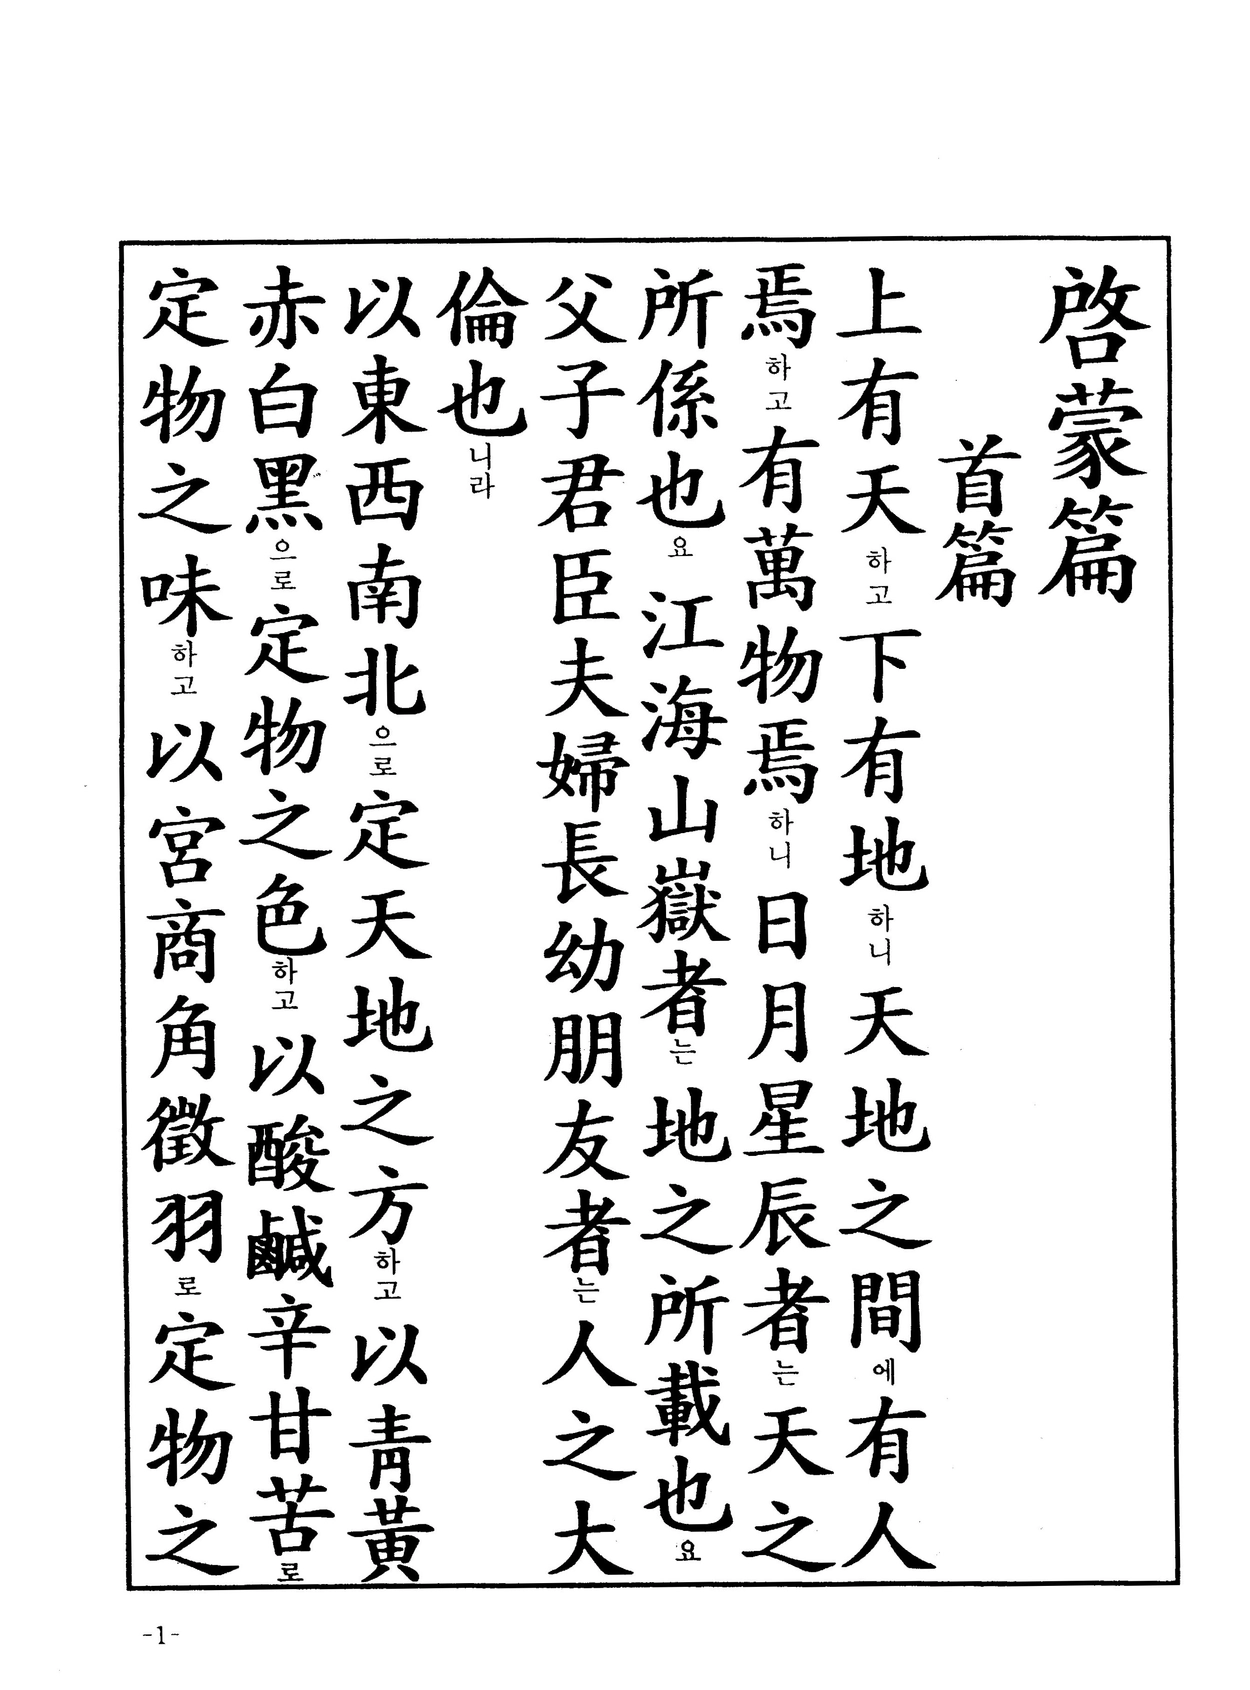 啓蒙篇
首篇
上有天하고下有地하니天地之間에有人
焉하고有萬物焉하니日月星辰者는天之
所係也요江海山嶽者는地之所載也요
父子君臣夫婦長幼朋友者는人之大
倫也니라
以東西南北으로定天地之方하고以靑黃
赤白黑으로定物之色하고以酸鹹辛甘苦로
定物之味하고以宮商角徵羽로定物之
-1-